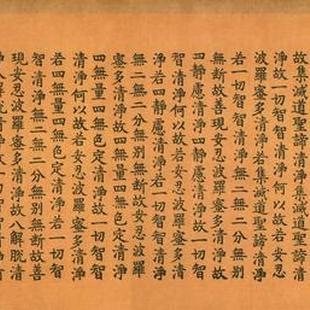 故集滅道聖諦清淨集滅道聖諦清
淨故一切智智清淨何以故若安忍
波羅蜜多清淨若集滅道聖諦清淨
若一切智智清淨無二無二分無別
無斷故善現安忍波羅蜜多清淨故
四靜慮清淨四靜慮清淨故一切智
智清淨何以故若安忍波羅蜜多清
淨若四靜慮清淨若一切智智清淨
無二無二分無別無斷故安忍波羅
蜜多清淨故四無量四無色定清淨
四無量四無色定清淨故一切智智
清淨何以故若安忍波羅蜜多清淨
若四無量四無色定清淨若一切智
智清淨無二無二分無別無斷故善
現安忍波羅蜜多清淨故八解脫清